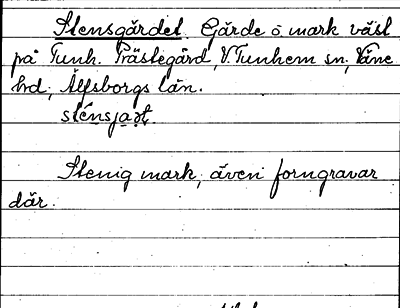 Stensgärdet. Gärde o mark väst
på Tunh. Prästegård, V. Tunhem sn, Väne
hd, Älfsborgs län.
Stenig mark, även forngravar
där.